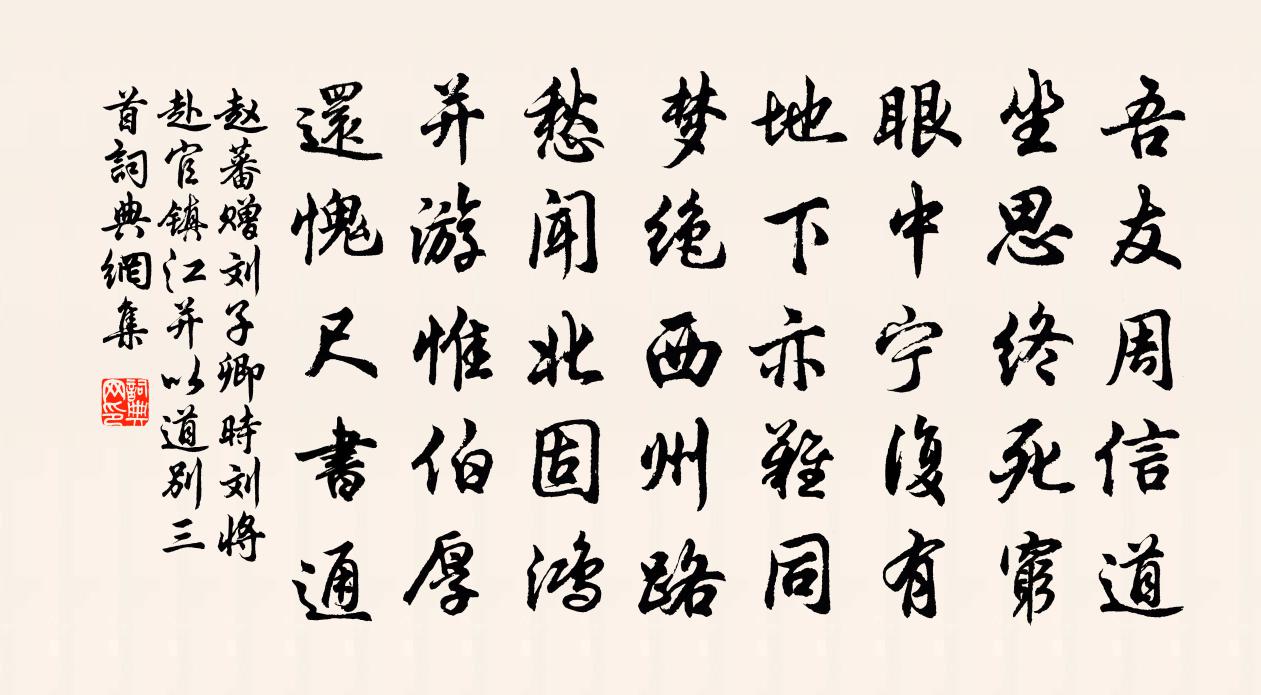 吾友周信道
坐思终死窮
眼中宁復有
地下亦難同
梦绝西州路
愁闻北固鸿
并游惟伯厚
還愧尺書通
赵蕃赠刘子卿時刘将
赴官镇江并以道别三
首詞典網集
詞典
网印